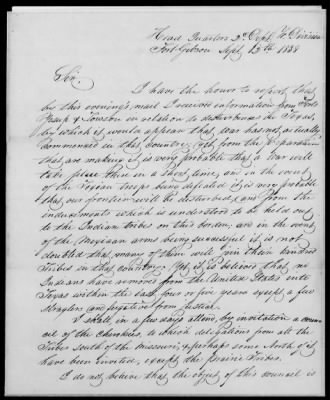 Head Quarters 2d Dept. W. Division
Fort Gibson Sept. 13th 1838
Sir,
I have the honor to report, that
by this evening's mail I received information from Forts
Jesup & Towson in relation to disturbances in Texas,
by which it would appear that war has not actually
commenced in that country, yet from the preparations
that are making it is very probable that a war will
take place there in a short time, and in the event
of the Texian troops being defeated it is very probable
that our frontier will be disturbed, and from the
inducements which is understood to be held out
to the Indian tribes on this border, and in the event
of the Mexican arms being successful it is not
doubted that many of them will join their kindred
tribes in that country. Yet, it is believed that no
Indians have removed from the United States into
Texas within the last four or five years except a few
straglers and fugitives from justice.
I shall, in a few days attend, by invitation a coun-
cil of the Cherokees, to which delegations from all the
Tribes south of the Missouri, & perhaps some North of it
have been invited, except the Prairie Tribes.
I do not believe that the object of this council is